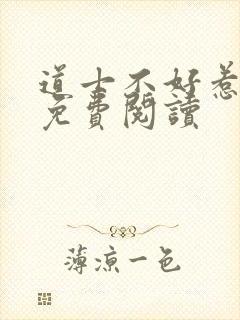 道士不好惹
免費閱讀
薄涼一色